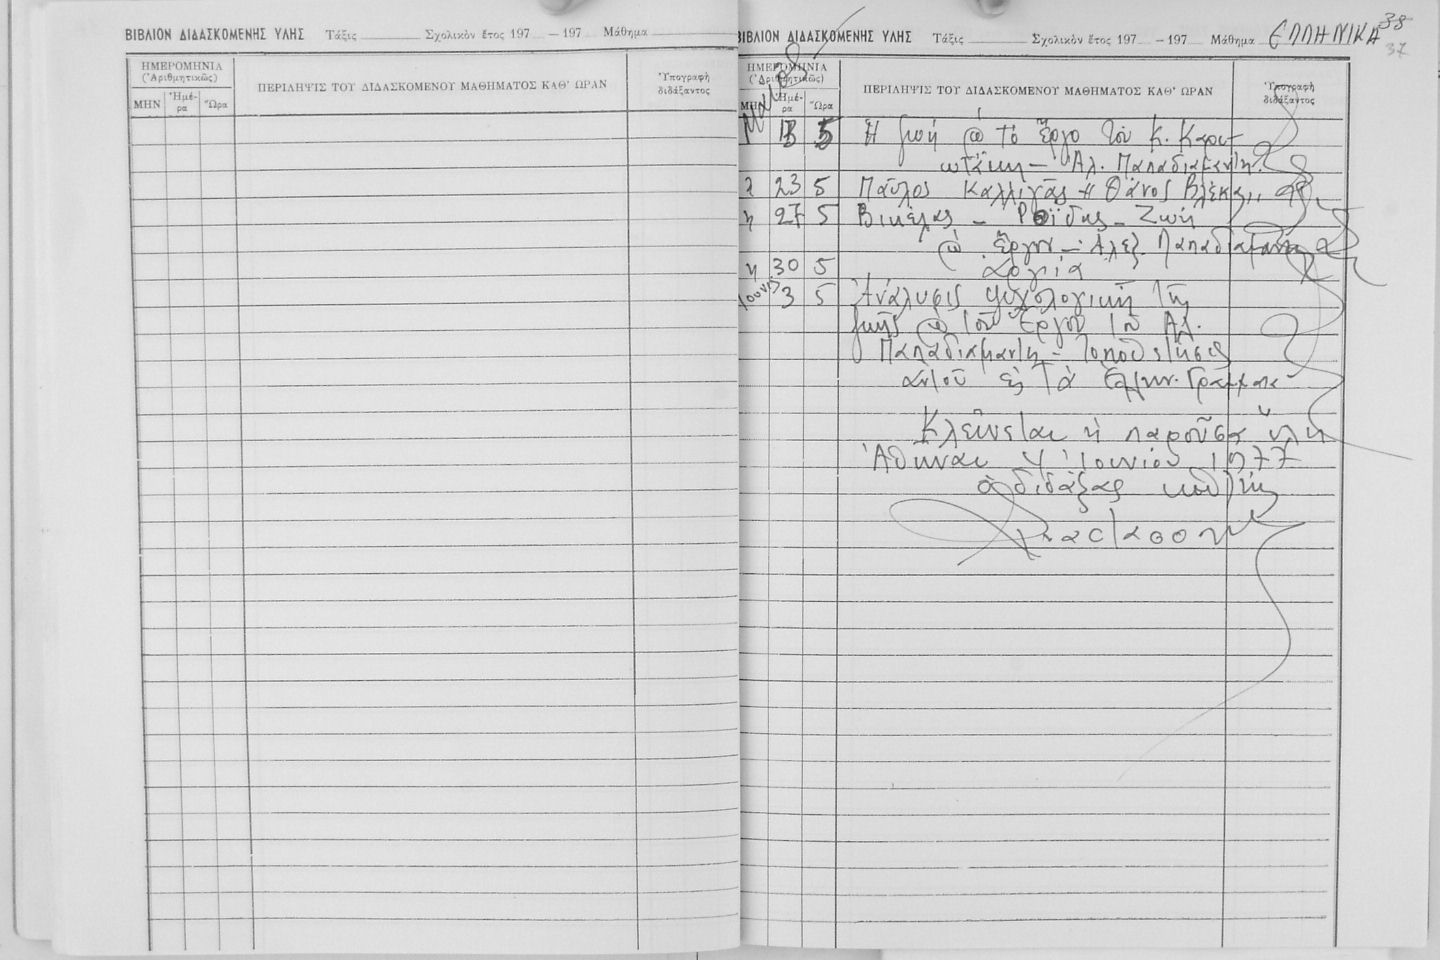 ΒΙΒΛΙΟΝ ΔΙΔΑΣΚΟΜΕΝΗΣ ΥΛΗΣ Τάξις Σχολικὸν ἔτος 197 — 197 Μάθημα
ΗΜΕΡΟΜΗΝΙΑ
(Ἀριθμητικῶς)
ΜΗΝ Ἡμέ-
ρα Ὥρα
ΠΕΡΙΛΗΨΙΣ ΤΟΥ ΔΙΔΑΣΚΟΜΕΝΟΥ ΜΑΘΗΜΑΤΟΣ ΚΑΘ' ΩΡΑΝ
Ὑπογραφὴ
διδάξαντος
38
ΒΙΒΛΙΟΝ ΔΙΔΑΣΚΟΜΕΝΗΣ ΥΛΗΣ Τάξις Σχολικὸν ἔτος 197 — 197 Μάθημα ΕΛΛΗΝΙΚΑ
37
ΗΜΕΡΟΜΗΝΙΑ
(Ἀριθμητικῶς)
ΜΗΝ Ἡμέ-
ρα Ὥρα
ΠΕΡΙΛΗΨΙΣ ΤΟΥ ΔΙΔΑΣΚΟΜΕΝΟΥ ΜΑΘΗΜΑΤΟΣ ΚΑΘ' ΩΡΑΝ
Ὑπογραφὴ
διδάξαντος
5 Η ζωή τό ἔργο τοῦ Κ. Καρυ-
ωτάκη — Ἀλ. Παπαδιαμάντη.
23 5 Παῦλος Καλλιγᾶς
27 5 Βικέλας — Ροΐδης — Ζωή
ἔργον — Ἀλεξ. Παπαδιαμάντη
η 30 5 ἀργία
3 5 Ἀνάλυσις ψυχολογική τῆς
ζωῆς τοῦ Ἔργου τοῦ Αλ.
Παπαδιαμάντη — Τοποθέτησις
αὐτοῦ εἰς τά Ἑλλην. Γράμματα
Κλείνεται ἡ παροῦσα ὕλη
Ἀθῆναι 4 Ἰουνίου 1977
ὁ διδάξας καθ/τής